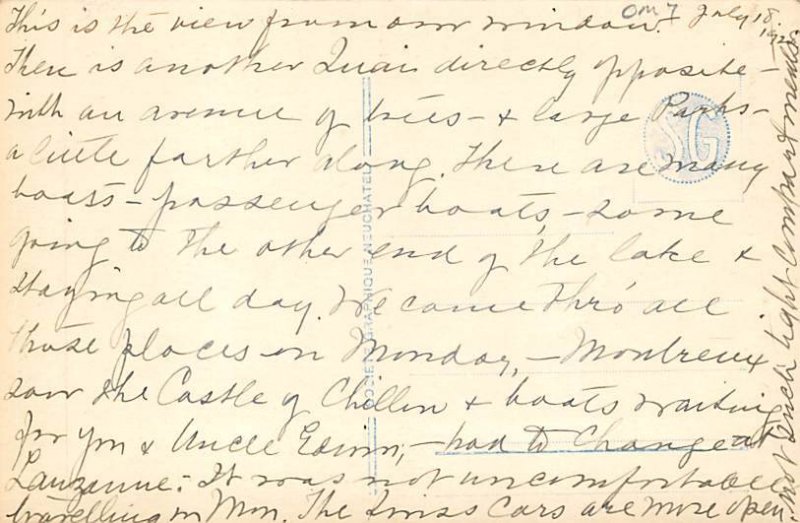 This is the view from our window. July 18
There is another Quai directly opposite-
with an avenue of trees - & large Parks -
a little farther along. There are many
boats - passenger boats, - some
going to the other end of the lake &
staying all day. We came thro' all
those places on Monday, - Montreux,
saw the Castle of Chillon & boats waiting
for you & Uncle Edwin, - had to change at
Lauzanne. It was not uncomfortable
travelling on Mon. The Swiss Cars are more open.
not such tight compartments
SG
SOCIÉTÉ GRAPHIQUE NEUCHATEL